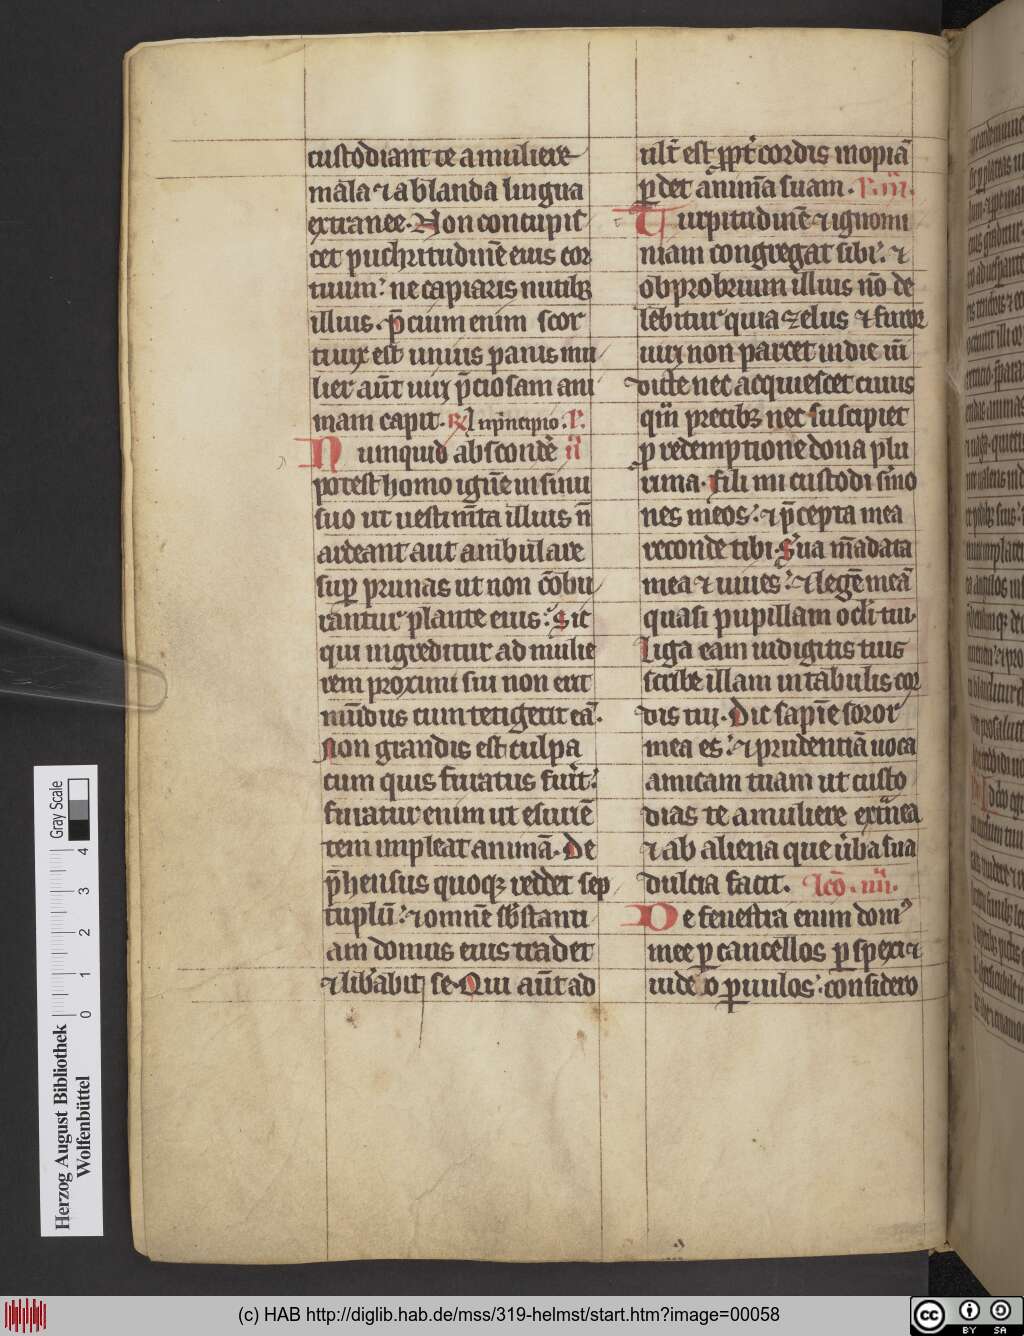 custodiant te a muliere
mala ⁊ a blanda lingua
extranee. Non concupis
cet pulchritudinē eius cor
tuum: ne capiaris nutibꝫ
illius. p̄cium enim scor
ti uix est unius panis mu
lier aūt uirj p̄ciosam ani
mam capit. ℟ In principio.
Nunquid abscondē
potest homo ignē in sinu
suo ut uestimta illius n̄
ardeant aut ambulare
suꝑ prunas ut non cōbu
rantur plante eius: Sic
qui ingreditur ad mulie
rem proximi sui non erit
mūdus cum tetigerit eā.
Non grandis est culpa
cum quis furatus fuīt:
furatur enim ut esuriē
tem impleat animā. De
p̄hensus quoqꝫ reddet sep
tuplū: ⁊ omnē sb̄stanti
am domus eius tradet
⁊ lib̄abit se. Qui aūt ad
ult̄ est ꝓpt̄ cordis inopiā
ꝑdet animā suam.
Turpitudinē ⁊ ignomi
niam congregat sibi: ⁊
obprobrium illius nō de
lebitur quia zelus ⁊ furor
uirj non parcet in die uī
dicte nec acquiescet cuius
qm̄ precibꝫ nec suscipiet
ꝓ redemptione dona plu
rima. Fili mi custodi smo
nes meos: ⁊ p̄cepta mea
reconde tibi. Sua mādata
mea ⁊ uiues: ⁊ legē meā
quasi pupillam oculi tui.
Liga eam in digitis tuis
scribe illam in tabulis cor
dis tui. Dic sapiē soror
mea es: ⁊ prudentiā uoca
amicam tuam ut custo
dias te a muliere extnea
⁊ ab aliena que ūba sua
dulcia facit. Lcō. iiii.
De fenestra enim domꝰ
mee ꝑ cancellos ꝑspexi ⁊
uideo paruulos: considero
Herzog August Bibliothek
Wolfenbüttel
0 1 2 3 4
Gray Scale
(c) HAB http://diglib.hab.de/mss/319-helmst/start.htm?image=00058
cc BY SA